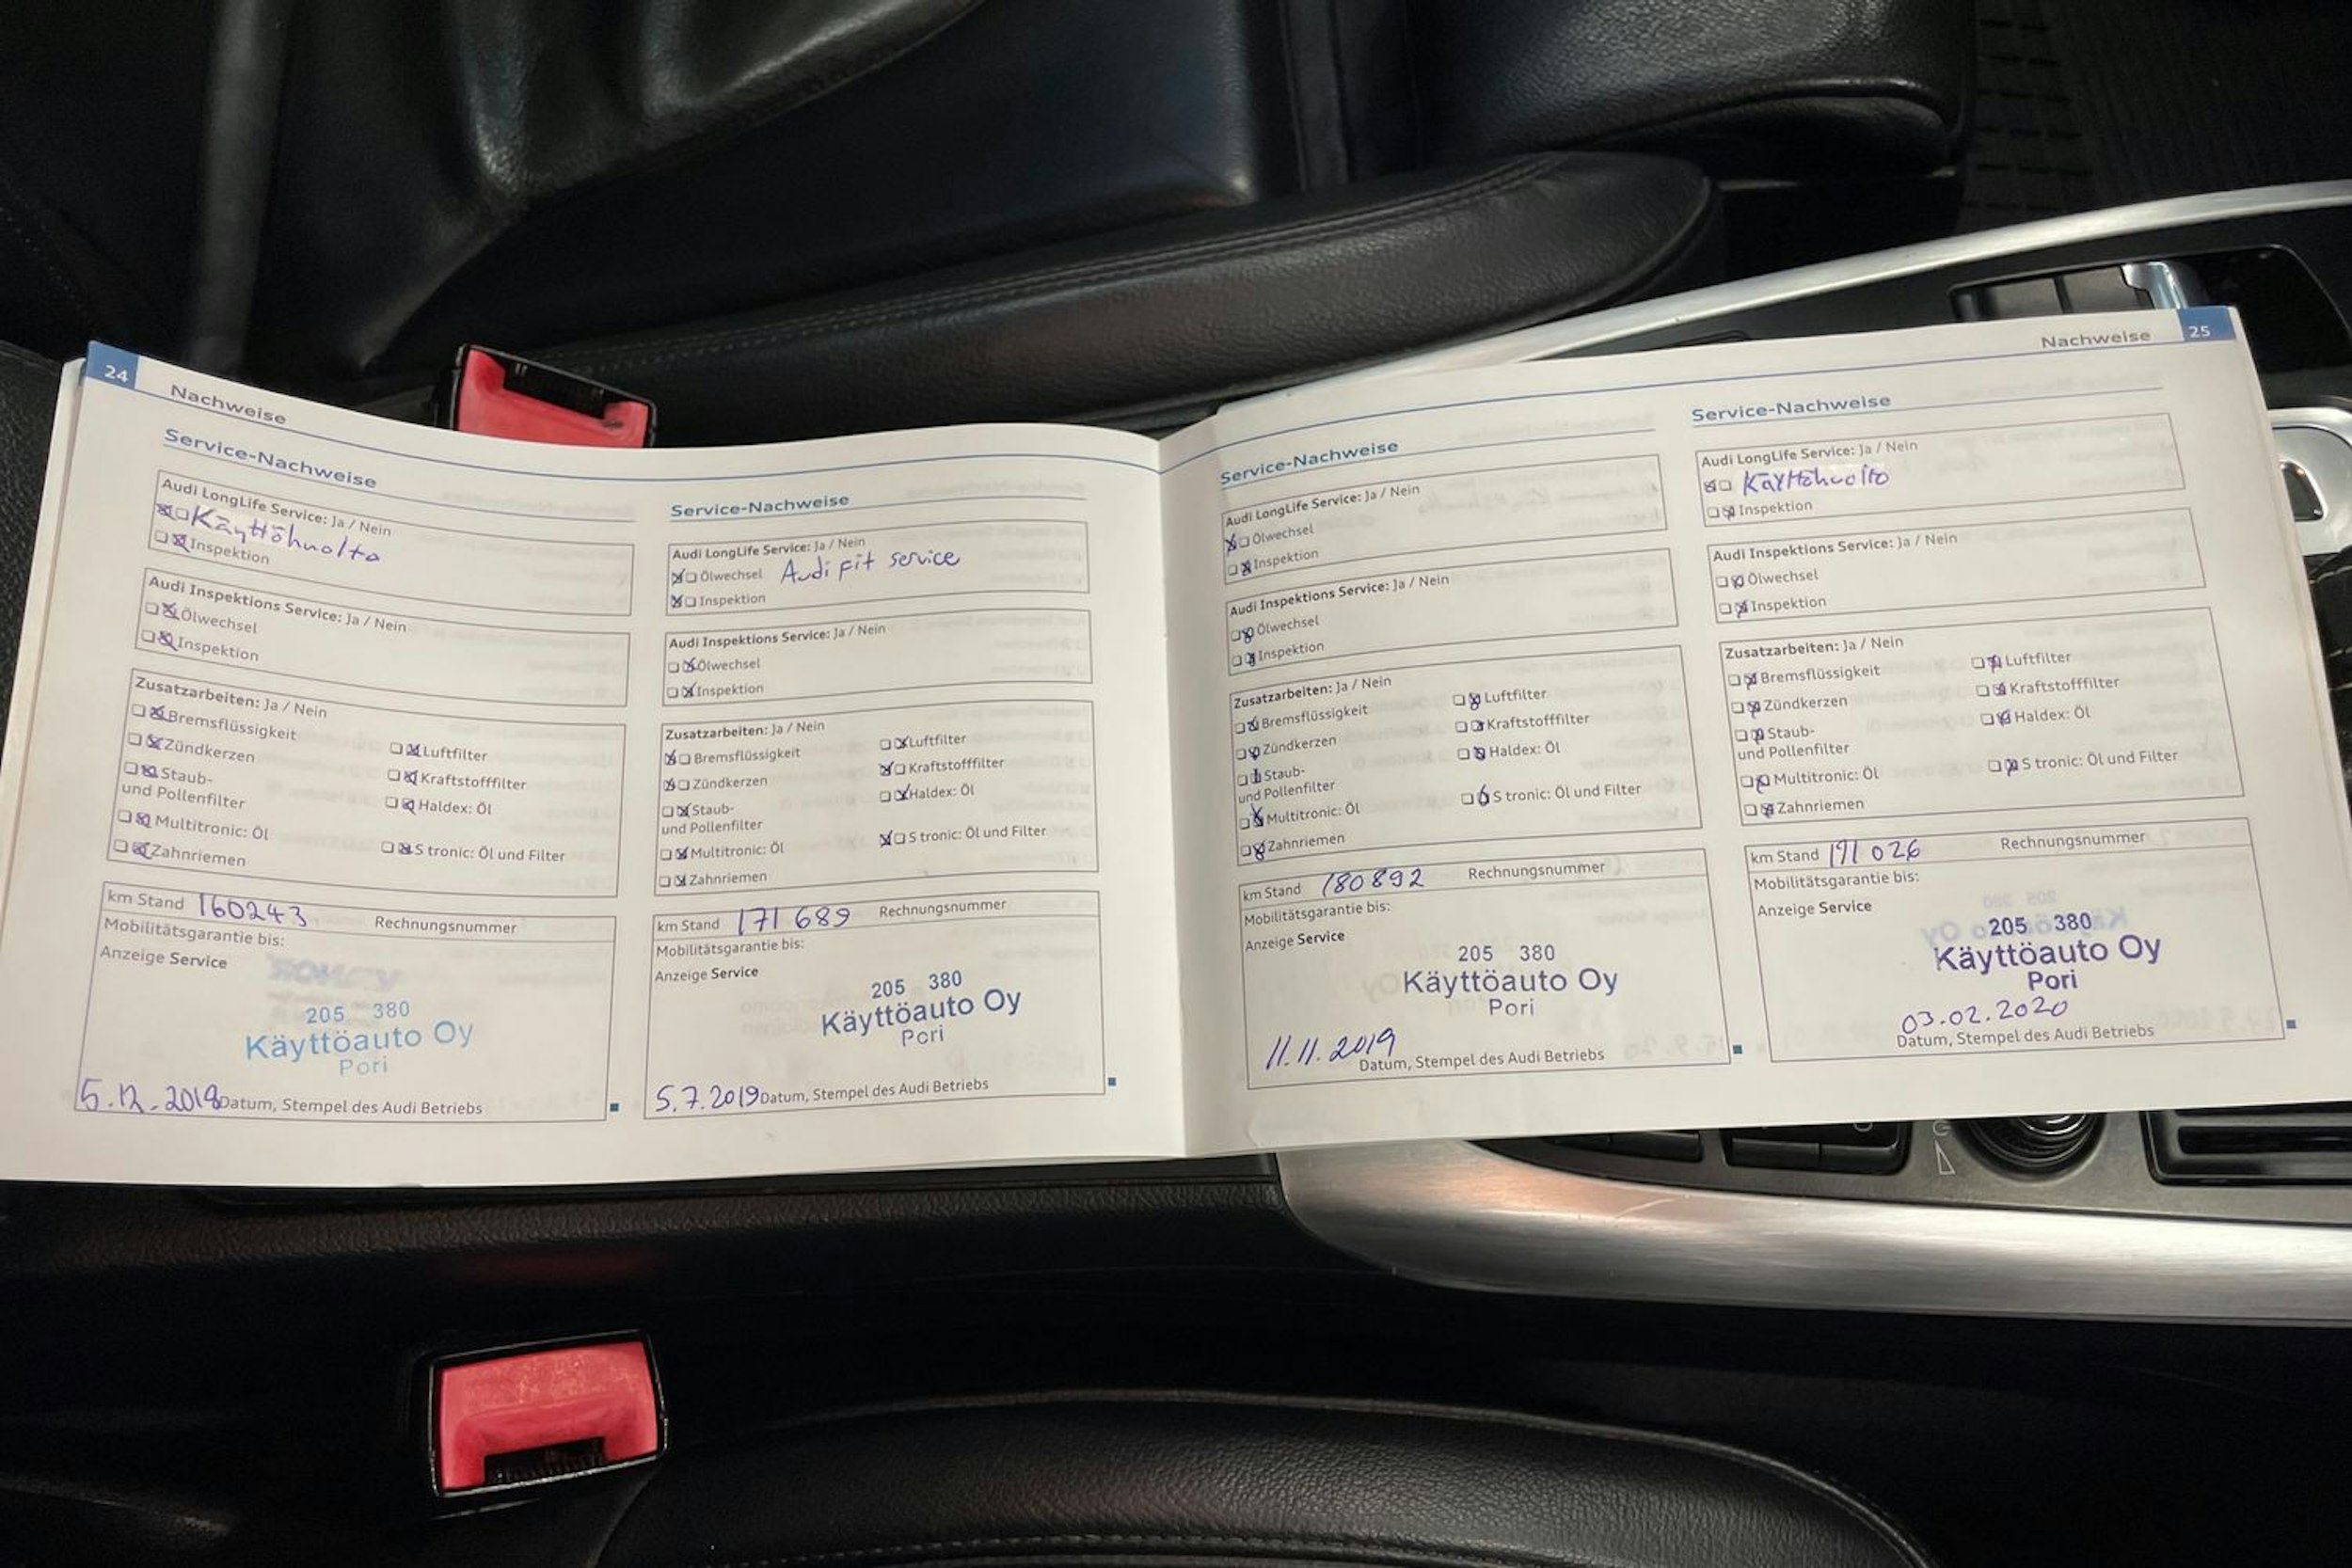 24
Nachweise
Service-Nachweise
Audi LongLife Service: Ja / Nein
Käyttöhuolto
Inspektion
Audi Inspektions Service: Ja / Nein
Ölwechsel
Inspektion
Zusatzarbeiten: Ja / Nein
Bremsflüssigkeit
Zündkerzen
Luftfilter
Staub-
und Pollenfilter
Kraftstofffilter
Haldex: Öl
Multitronic: Öl
Zahnriemen
S tronic: Öl und Filter
km Stand 160243 Rechnungsnummer
Mobilitätsgarantie bis:
Anzeige Service
205 380
Käyttöauto Oy
Pori
5.12.2018 Datum, Stempel des Audi Betriebs
Service-Nachweise
Audi LongLife Service: Ja / Nein
Ölwechsel Audi Fit service
Inspektion
Audi Inspektions Service: Ja / Nein
Ölwechsel
Inspektion
Zusatzarbeiten: Ja / Nein
Bremsflüssigkeit
Luftfilter
Zündkerzen
Kraftstofffilter
Staub-
und Pollenfilter
Haldex: Öl
Multitronic: Öl
S tronic: Öl und Filter
Zahnriemen
km Stand 171 689 Rechnungsnummer
Mobilitätsgarantie bis:
Anzeige Service
205 380
Käyttöauto Oy
Pori
5.7.2019 Datum, Stempel des Audi Betriebs
Nachweise
25
Service-Nachweise
Audi LongLife Service: Ja / Nein
Ölwechsel
Inspektion
Audi Inspektions Service: Ja / Nein
Ölwechsel
Inspektion
Zusatzarbeiten: Ja / Nein
Bremsflüssigkeit
Luftfilter
Zündkerzen
Kraftstofffilter
Staub-
und Pollenfilter
Haldex: Öl
Multitronic: Öl
S tronic: Öl und Filter
Zahnriemen
km Stand 180892 Rechnungsnummer
Mobilitätsgarantie bis:
Anzeige Service
205 380
Käyttöauto Oy
Pori
11.11.2019
Datum, Stempel des Audi Betriebs
Service-Nachweise
Audi LongLife Service: Ja / Nein
Käyttöhuolto
Inspektion
Audi Inspektions Service: Ja / Nein
Ölwechsel
Inspektion
Zusatzarbeiten: Ja / Nein
Bremsflüssigkeit
Luftfilter
Zündkerzen
Kraftstofffilter
Staub-
und Pollenfilter
Haldex: Öl
Multitronic: Öl
S tronic: Öl und Filter
Zahnriemen
km Stand 191 026 Rechnungsnummer
Mobilitätsgarantie bis:
Anzeige Service
205 380
Käyttöauto Oy
Pori
03.02.2020
Datum, Stempel des Audi Betriebs